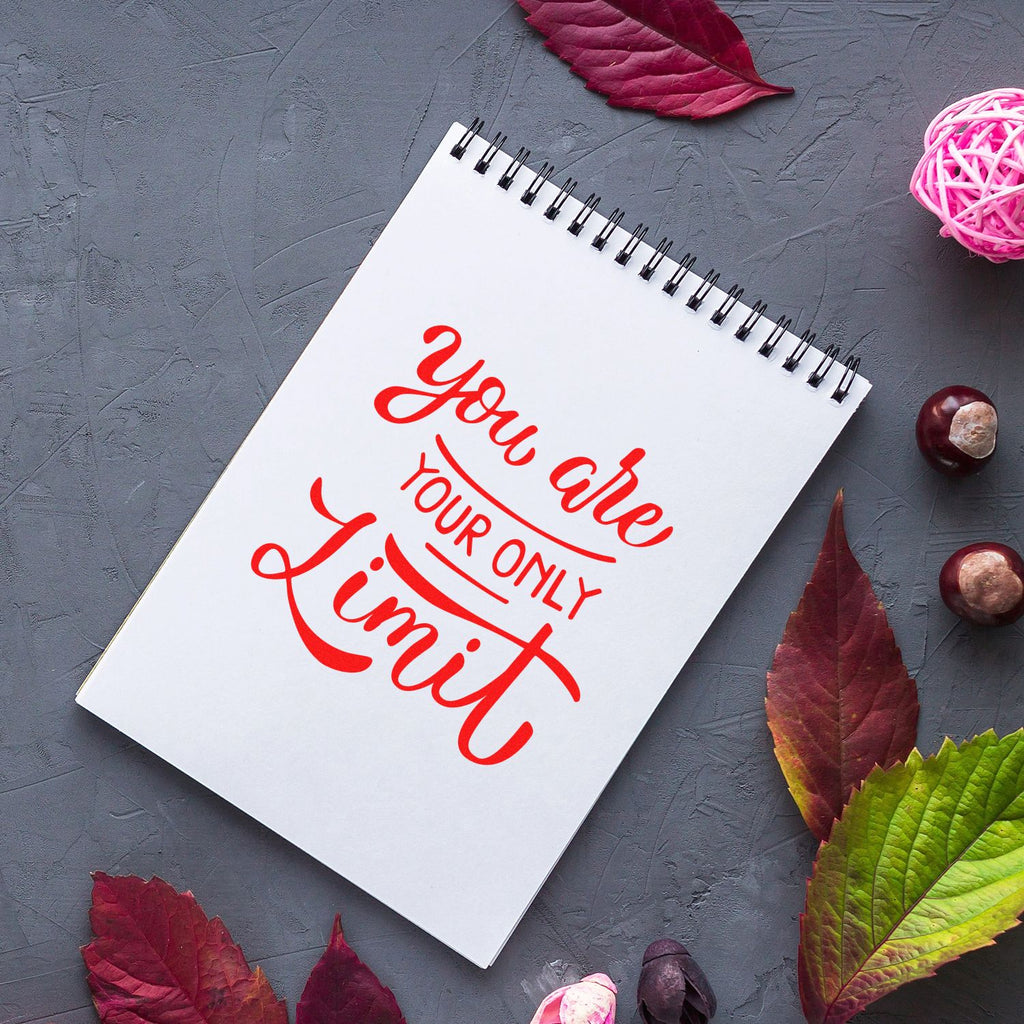 you are
YOUR ONLY
Limit